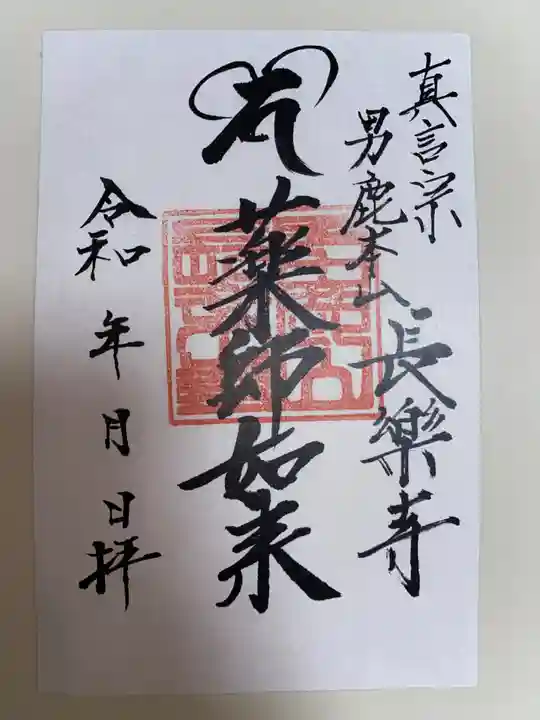 真言宗
男鹿本山 長樂寺
薬師如来
令和 年 月 日拝